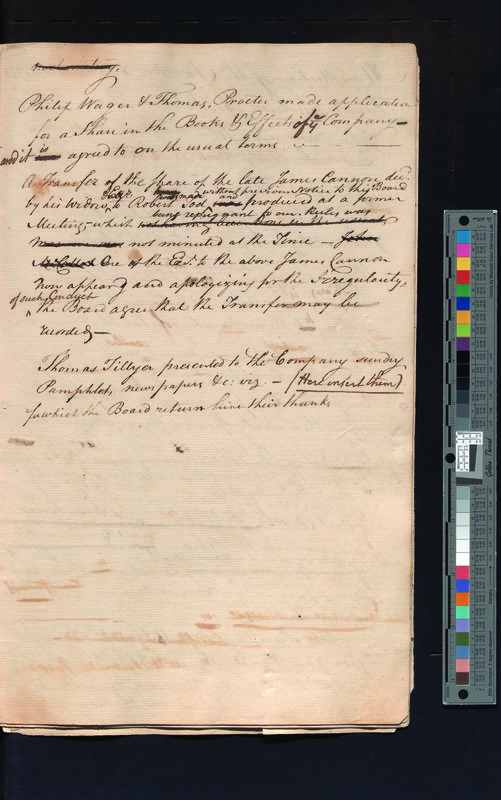 Philip Wager & Thomas Procter made application
for a Share in the Books & Effects of ye Company
and it is agreed to on the usual terms.
A Transfer of the Share of the late James Cannon dec:
without previous Notice to this Board
by his Widow to Robert Tod and produced at a former
being repugnant to our Rules was
Meeting which
not minuted at the Time — John
One of the Exs. to the above James Cannon
now appeard and apologizing for the Irregularity
of such Conduct
the Board agree that the Transfer may be
recorded —
Thomas Tillyer presented to the Company sundry
Pamphlets, news papers &c: viz. — (Here insert them)
for which the Board return him their thanks